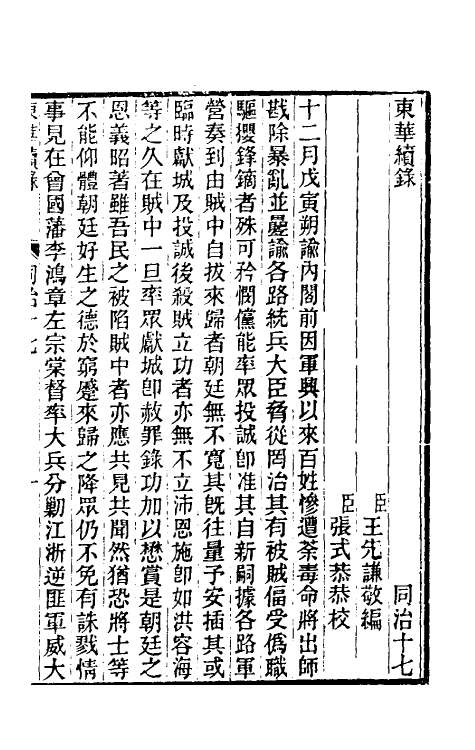 東華續錄　同治十七
臣王先謙敬編
臣張式恭恭校
十二月戊寅朔諭內閣前因軍興以來百姓慘遭荼毒命將出師
戡除暴亂並屢諭各路統兵大臣脅從罔治其有被賊偪受僞職
驅攖鋒鏑者殊可矜憫儻能率眾投誠卽准其自新嗣據各路軍
營奏到由賊中自拔來歸者朝廷無不寬其旣往量予安插其或
臨時獻城及投誠後殺賊立功者亦無不立沛恩施卽如洪容海
等之久在賊中一旦率眾獻城卽赦罪錄功加以懋賞是朝廷之
恩義昭著雖吾民之被陷賊中者亦應共見共聞然猶恐將士等
不能仰體朝廷好生之德於窮蹙來歸之降眾仍不免有誅戮情
事見在曾國藩李鴻章左宗棠督率大兵分勦江浙逆匪軍威大
東華續錄　同治十七　一